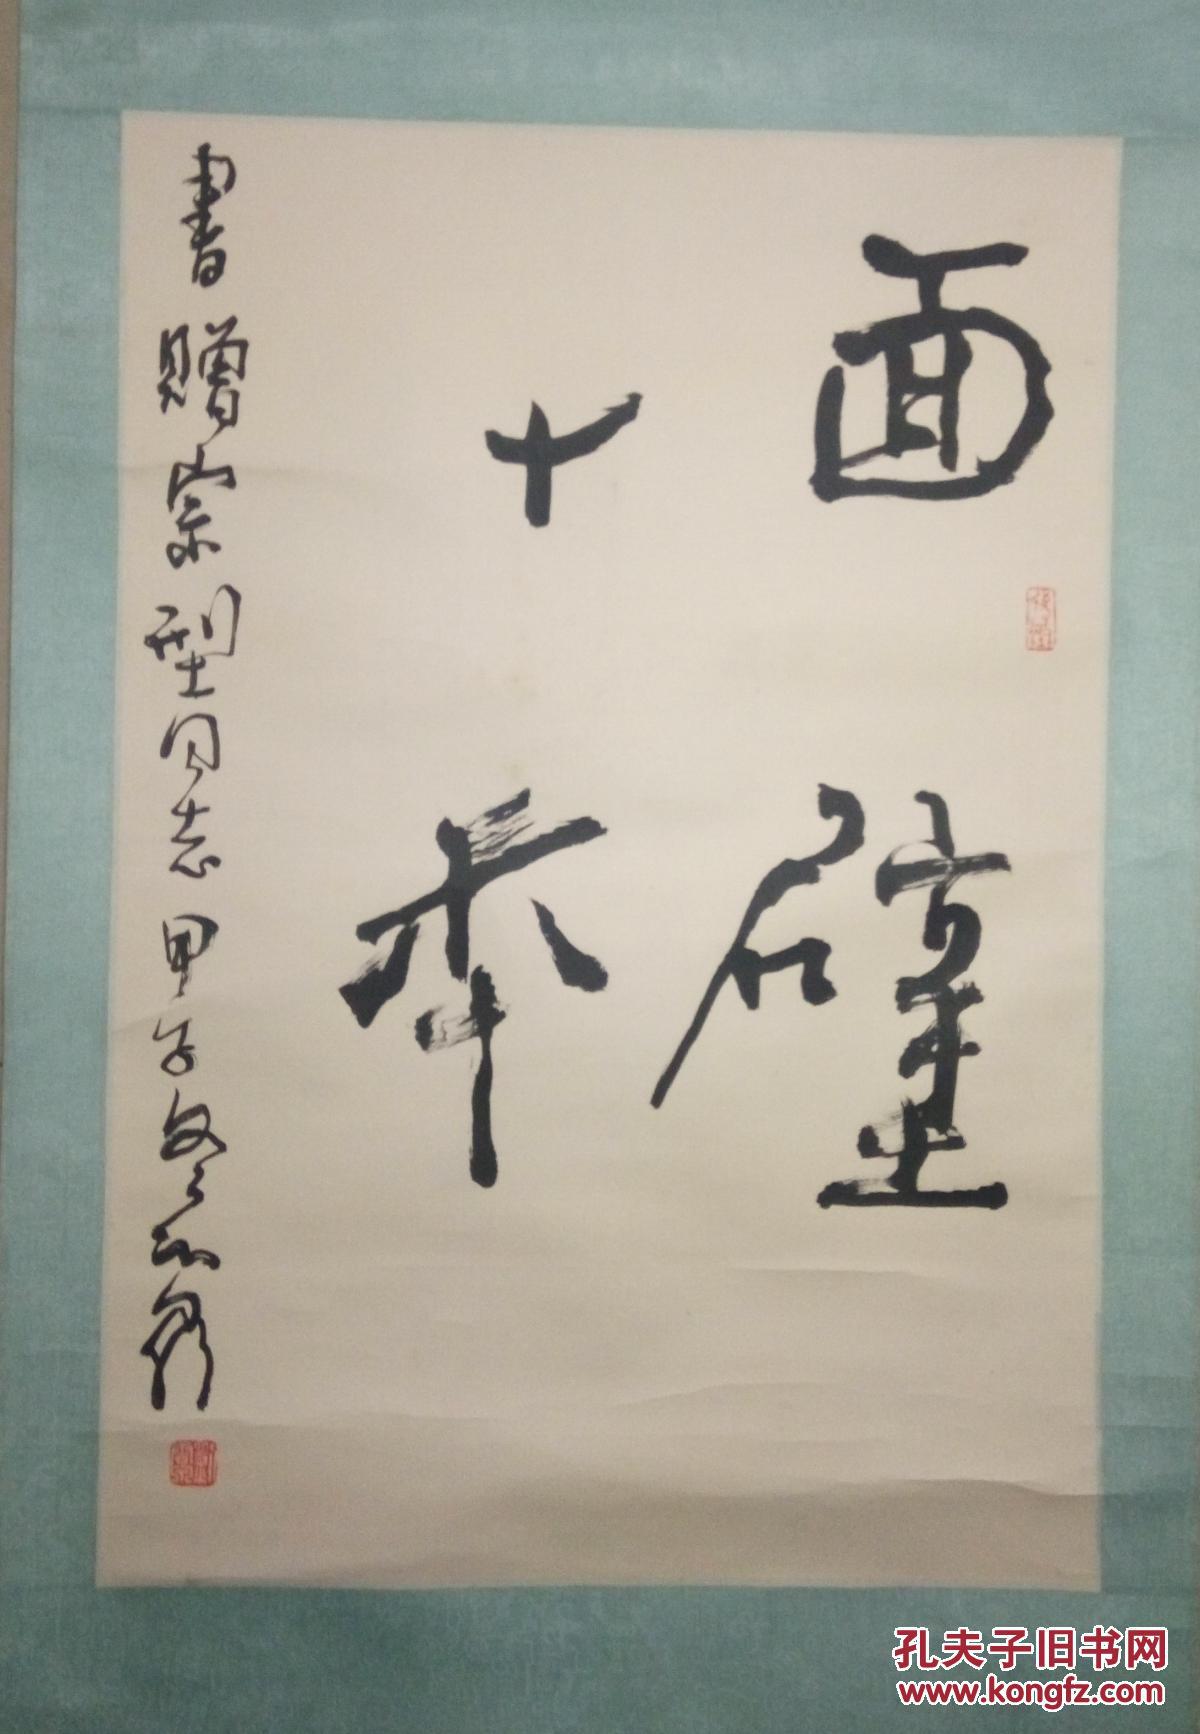 面壁
十年
書贈宗型同志 甲子冬
孔夫子旧书网
www.kongfz.com